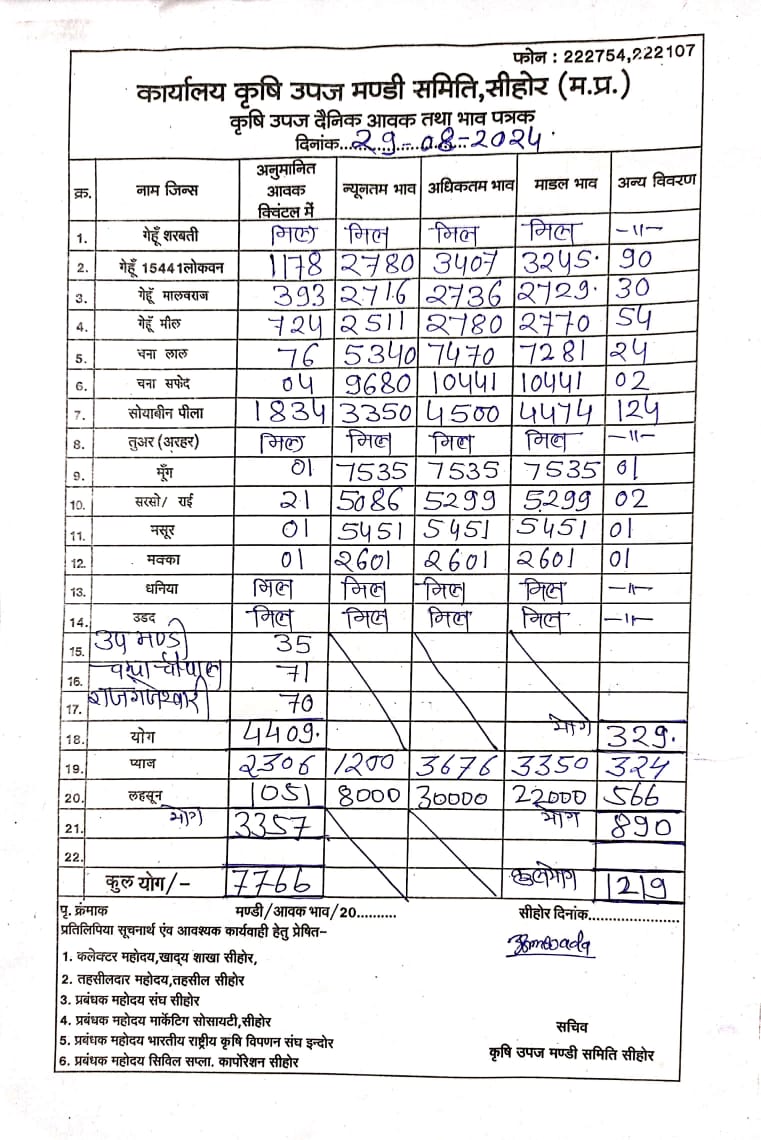 फोन : 222754,222107
कार्यालय कृषि उपज मण्डी समिति,सीहोर (म.प्र.)
कृषि उपज दैनिक आवक तथा भाव पत्रक
दिनांक...29-08-2024
क्र. नाम जिन्स अनुमानित आवक क्विंटल में न्यूनतम भाव अधिकतम भाव माडल भाव अन्य विवरण
1. गेहूँ शरबती निल निल निल निल -॥-
2. गेहूँ 15441लोकवन 1178 2780 3407 3245 90
3. गेहूँ मालवराज 393 2716 2736 2729 30
4. गेहूँ मील 724 2511 2780 2770 54
5. चना लाल 76 5340 7470 7281 24
6. चना सफेद 04 9680 10441 10441 02
7. सोयाबीन पीला 1834 3350 4500 4474 124
8. तुअर (अरहर) निल निल निल निल -॥-
9. मूँग 01 7535 7535 7535 01
10. सरसो/ राई 21 5086 5299 5299 02
11. मसूर 01 5451 5451 5451 01
12. मक्का 01 2601 2601 2601 01
13. धनिया निल निल निल निल -॥-
14. उडद निल निल निल निल -॥-
15. उप मण्डी 35
16. 71
17. 70
18. योग 4409 योग 329
19. प्याज 2306 1200 3676 3350 324
20. लहसून 1051 8000 30000 22000 566
21. योग 3357 योग 890
22.
कुल योग/- 7766 कुलयोग 1219
पृ. क्रंमाक मण्डी/आवक भाव/20.......... सीहोर दिनांक......................
प्रतिलिपिया सूचनार्थ एंव आवश्यक कार्यवाही हेतु प्रेषित–
1. कलेक्टर महोदय,खाद्य शाखा सीहोर,
2. तहसीलदार महोदय,तहसील सीहोर
3. प्रबंधक महोदय संघ सीहोर
4. प्रबंधक महोदय मार्केटिग सोसायटी,सीहोर
5. प्रबंधक महोदय भारतीय राष्ट्रीय कृषि विपणन संघ इन्दोर
6. प्रबंधक महोदय सिविल सप्ला. कार्पोरेशन सीहोर
सचिव
कृषि उपज मण्डी समिति सीहोर